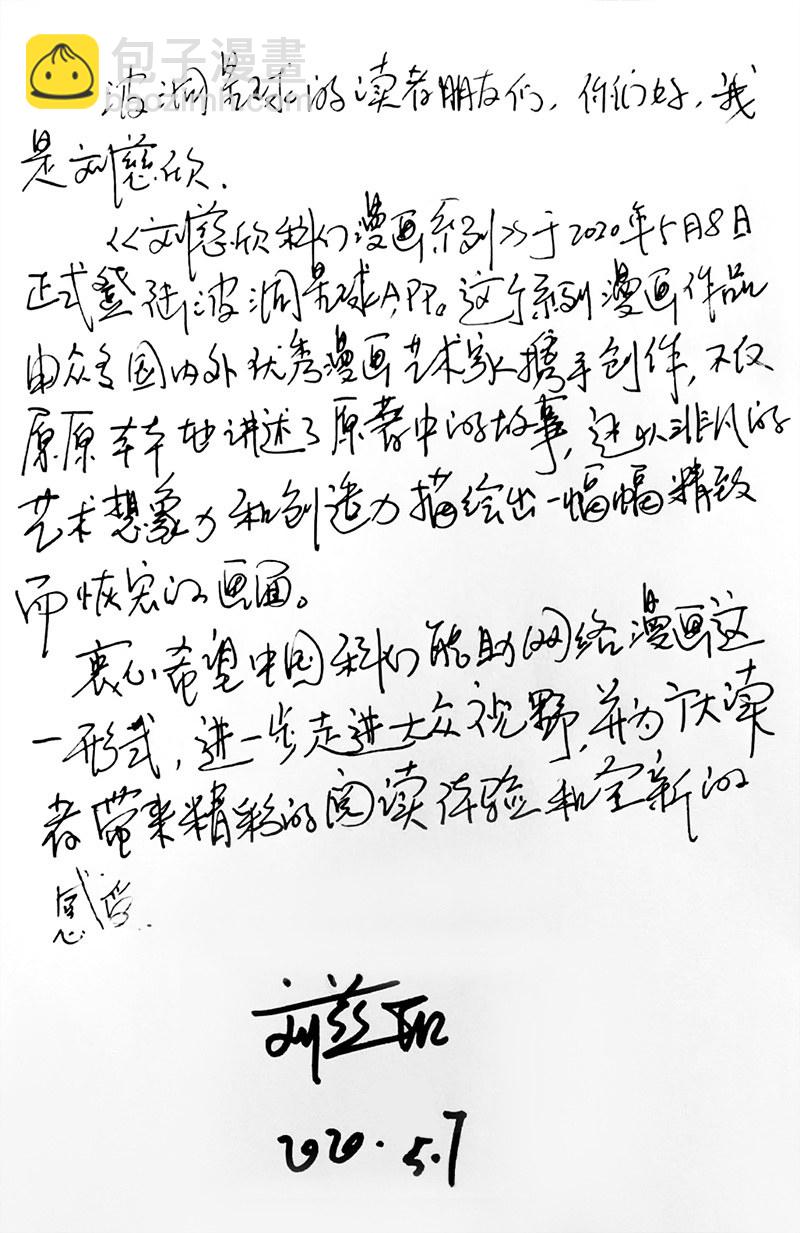 包子漫畫
baozimh.com
波洞星球的读者朋友们，你们好，我
是刘慈欣.
《刘慈欣科幻漫画系列》于2020年5月8日
正式登陆波洞星球APP。这个系列漫画作品
由众多国内外优秀漫画艺术家携手创作，不仅
原原本本地讲述了原著中的故事，还以非凡的
艺术想象力和创造力描绘出一幅幅精致
而恢宏的画面。
衷心希望中国科幻能助网络漫画这
一形式，进一步走进大众视野，并为广大读
者带来精彩的阅读体验和全新的
感受.
刘慈欣
2020.5.7